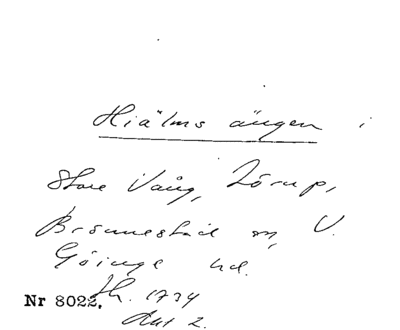 Hiälms ängen i
Store Vång, Lörup,
Brönnestad sn, V.
Göinge hd.
Nr 8022. Lh. 1734
Akt 2.